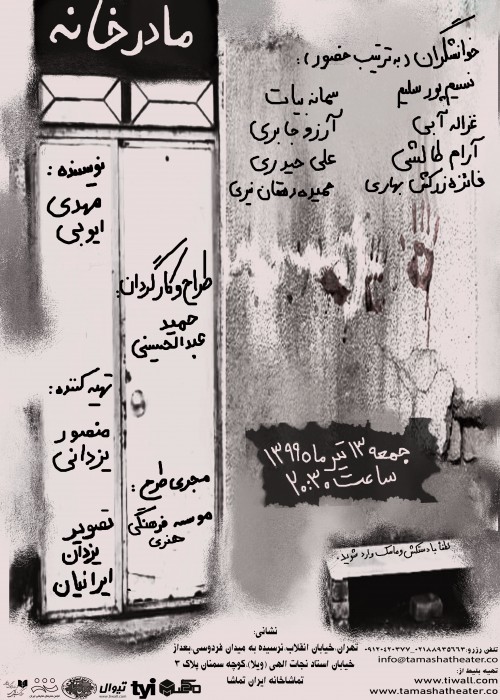 مادرخانه
خوانشگران (به ترتیب حضور):
نسیم پور سلیم
سمانه بیات
غزاله آبی
آرزو جابری
آرام طالشی
علی حیدری
فائزه زرکش بهاری
حمیده رمضان نیری
نویسنده:
مهدی
ایوبی
طراح و کارگردان:
حمید
عبدالحسینی
تهیه کننده:
منصور
یزدانی
مجری طرح:
موسسه فرهنگی
هنری
تصویر
یزدان
ایرانیان
جمعه ۱۳ تیر ماه ۱۳۹۹
ساعت ۲۰:۳۰
لطفا با دستکش و ماسک وارد شوید.
نشانی:
تهران.خیابان انقلاب.نرسیده به میدان فردوسی.بعداز
خیابان استاد نجات الهی (ویلا).کوچه سمنان پلاک ۳
تماشاخانه ایران تماشا
تلفن رزرو: ۰۲۱۸۸۹۳۵۶۶۳_۰۹۱۲۰۴۲۰۳۷۷
info@tamashatheater.co
تهیه بلیط از:
www.tiwall.com
www.tamashatheater.com
تیوال
tyi